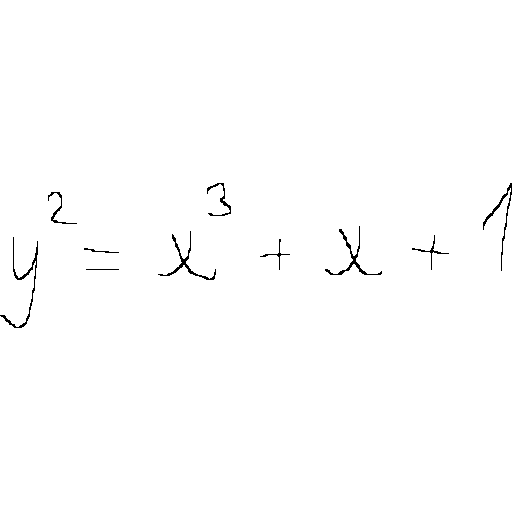 y² = x³ + x + 1